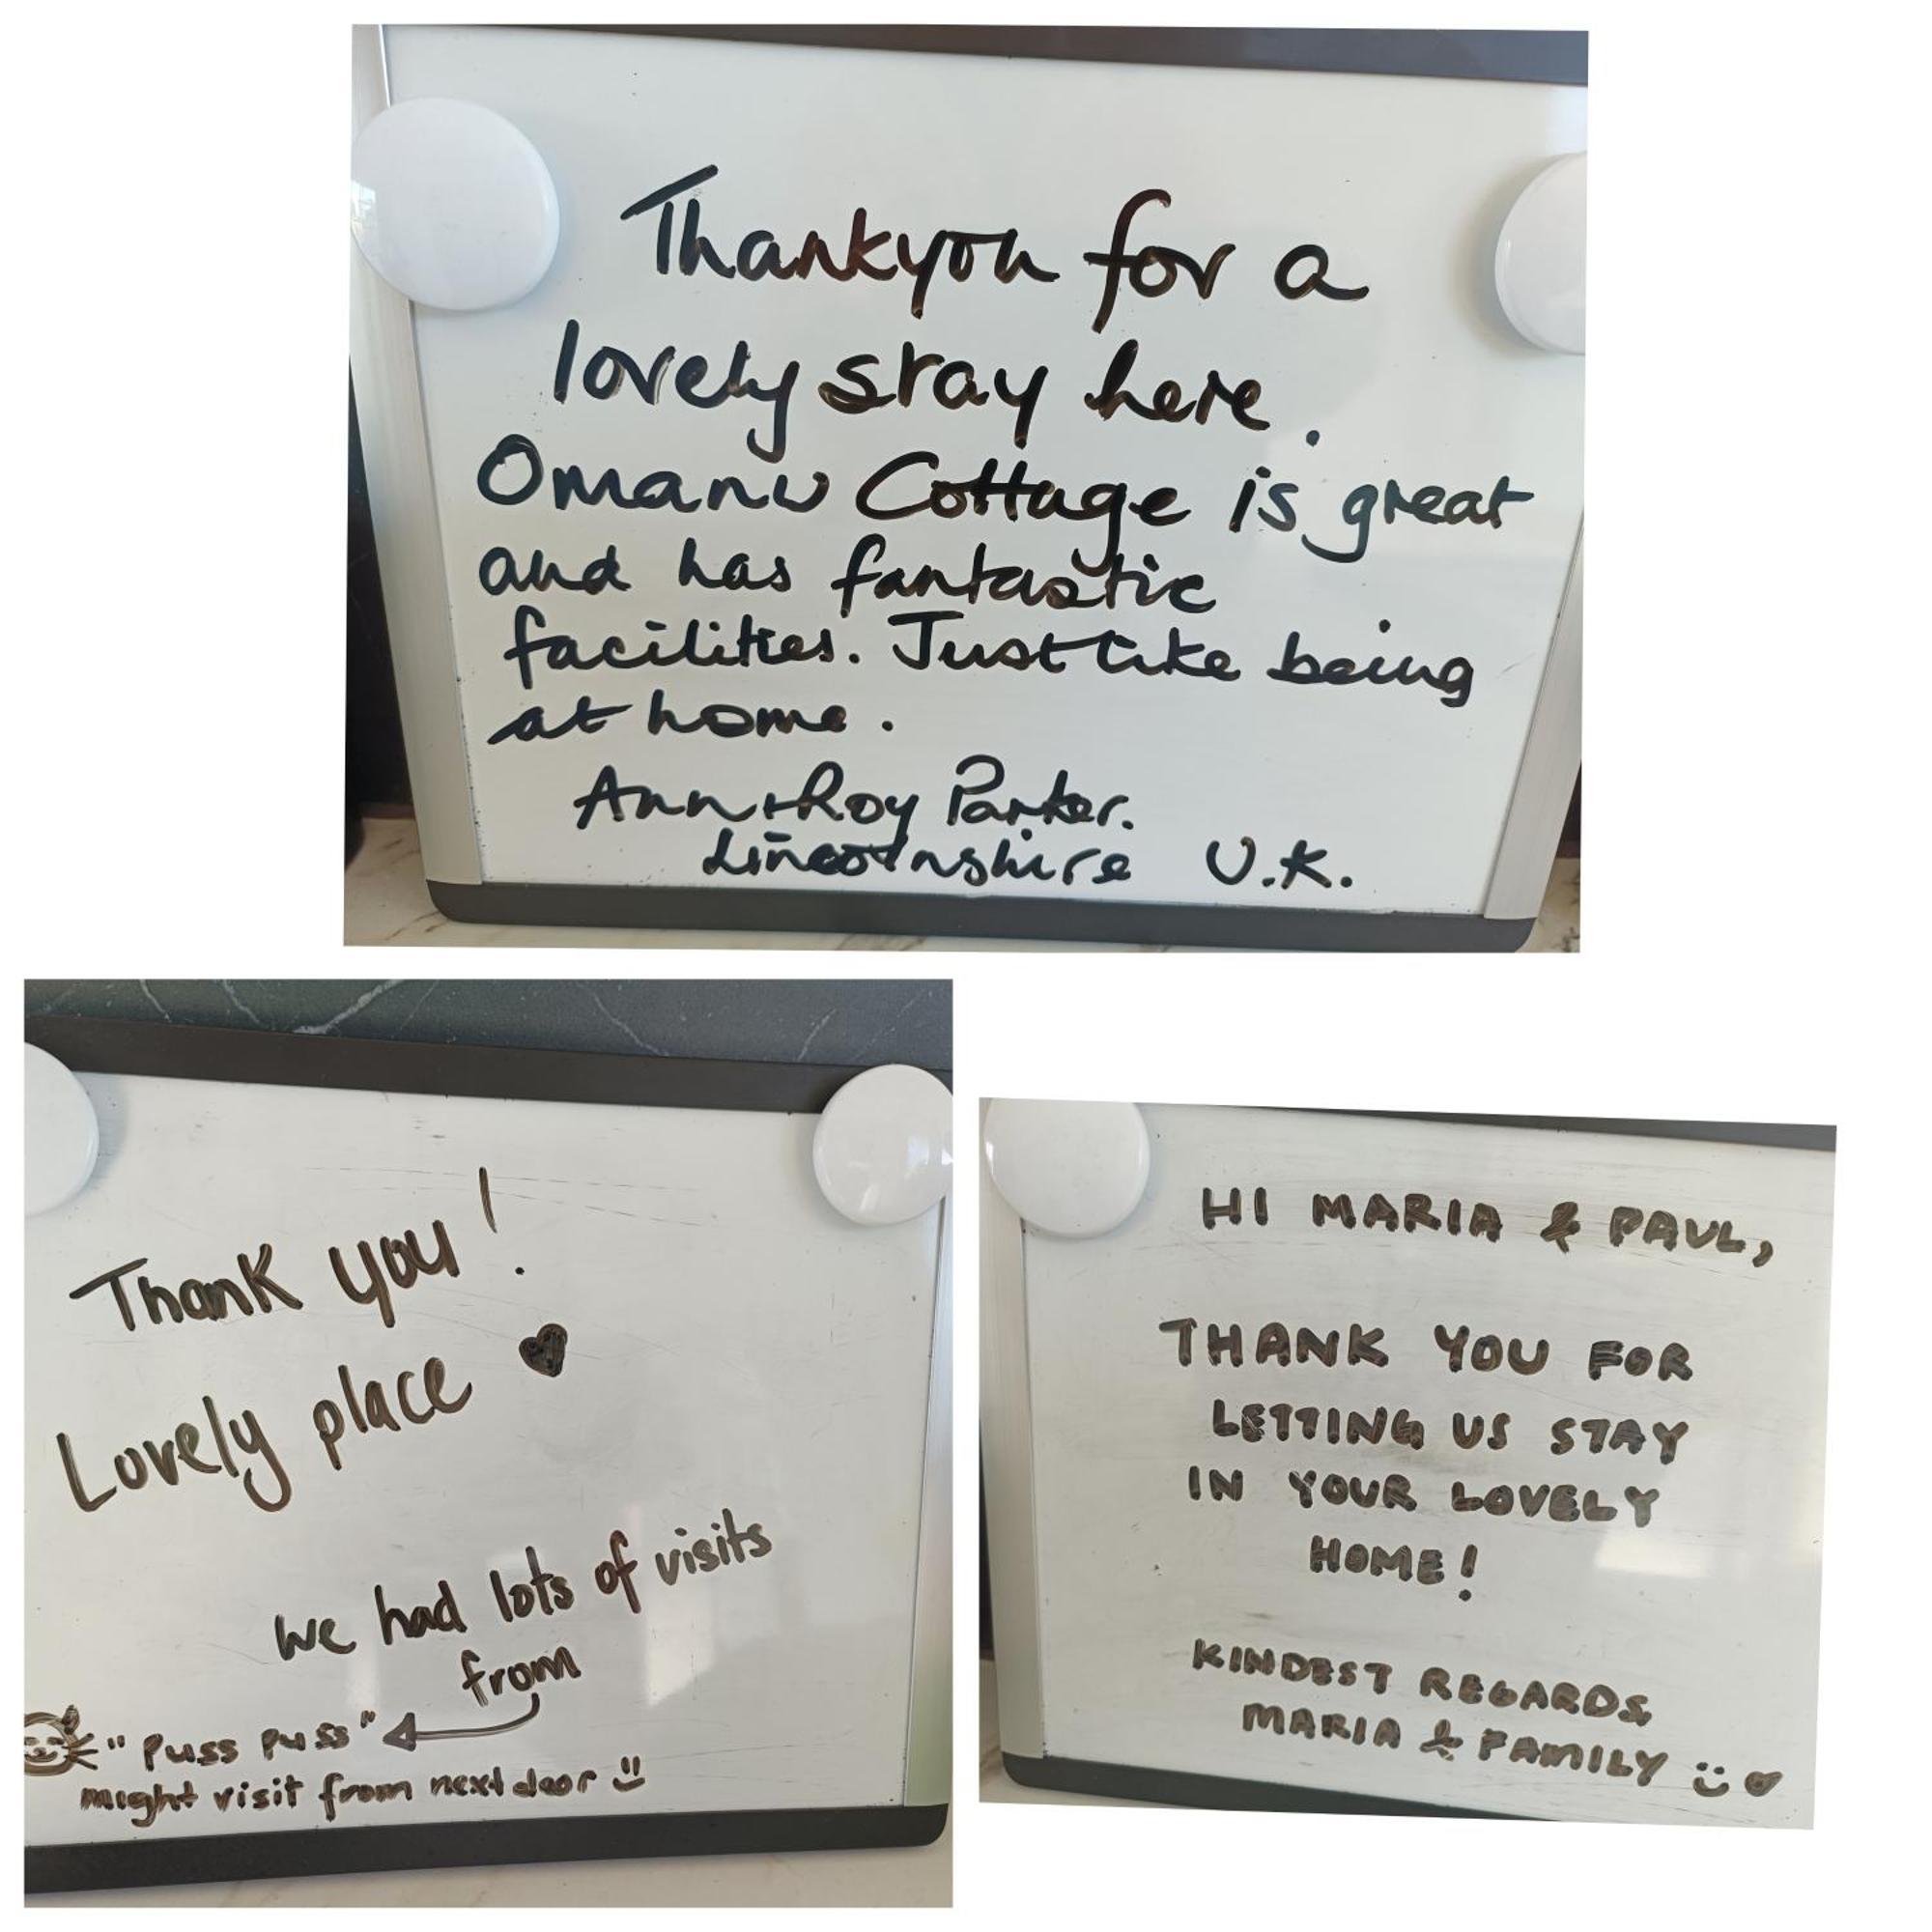 Thankyou for a
lovely stay here.
Omanu Cottage is great
and has fantastic
facilities. Just like being
at home.
Ann + Roy Parker.
Lincolnshire U.K.
Thank you!
Lovely place ♥
we had lots of visits
from
"Puss puss"
might visit from next door
HI MARIA & PAUL,
THANK YOU FOR
LETTING US STAY
IN YOUR LOVELY
HOME!
KINDEST REGARDS
MARIA & FAMILY